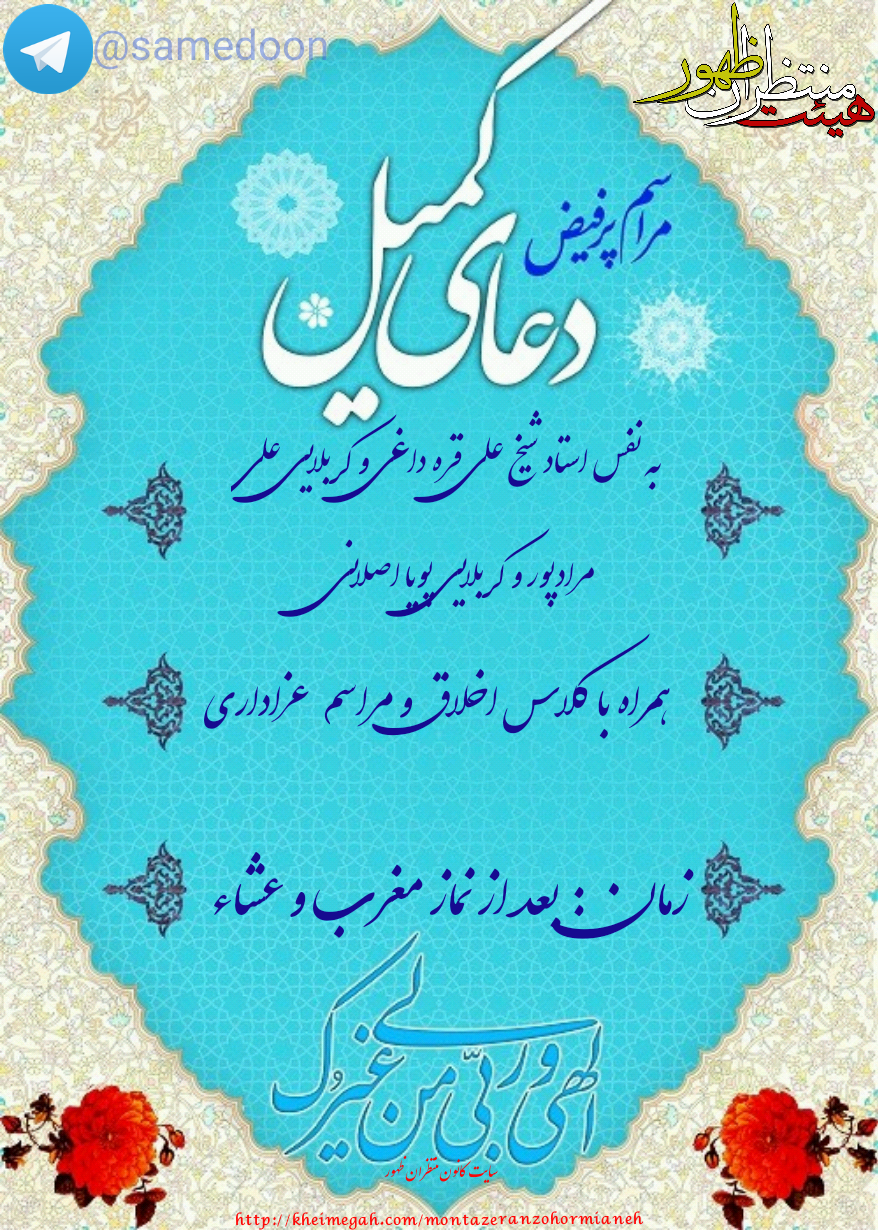 @samedoon
هیئت منتظران ظهور
مراسم پرفیض
دعای کمیل
به نفس استاد شیخ علی قره داغی و کربلایی علی
مرادپور و کربلایی پویا اصلانی
همراه با کلاس اخلاق و مراسم عزاداری
زمان : بعد از نماز مغرب و عشاء
الهی و ربی من لی غیرک
سایت کانون منتظران ظهور
http://kheimegah.com/montazeranzohormianeh